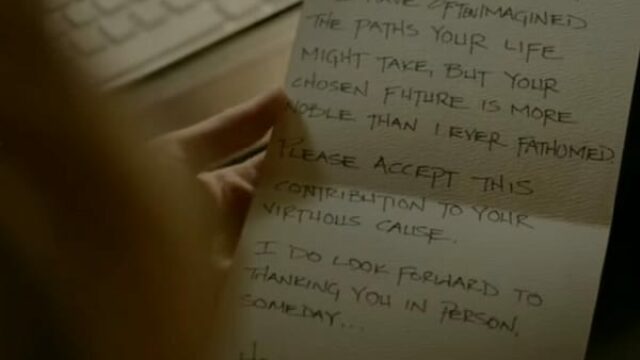 HAVE OFTEN IMAGINED
THE PATHS YOUR LIFE
MIGHT TAKE, BUT YOUR
CHOSEN FUTURE IS MORE
NOBLE THAN I EVER FATHOMED.
PLEASE ACCEPT THIS
CONTRIBUTION TO YOUR
VIRTUOUS CAUSE.
I DO LOOK FORWARD TO
THANKING YOU IN PERSON,
SOMEDAY...